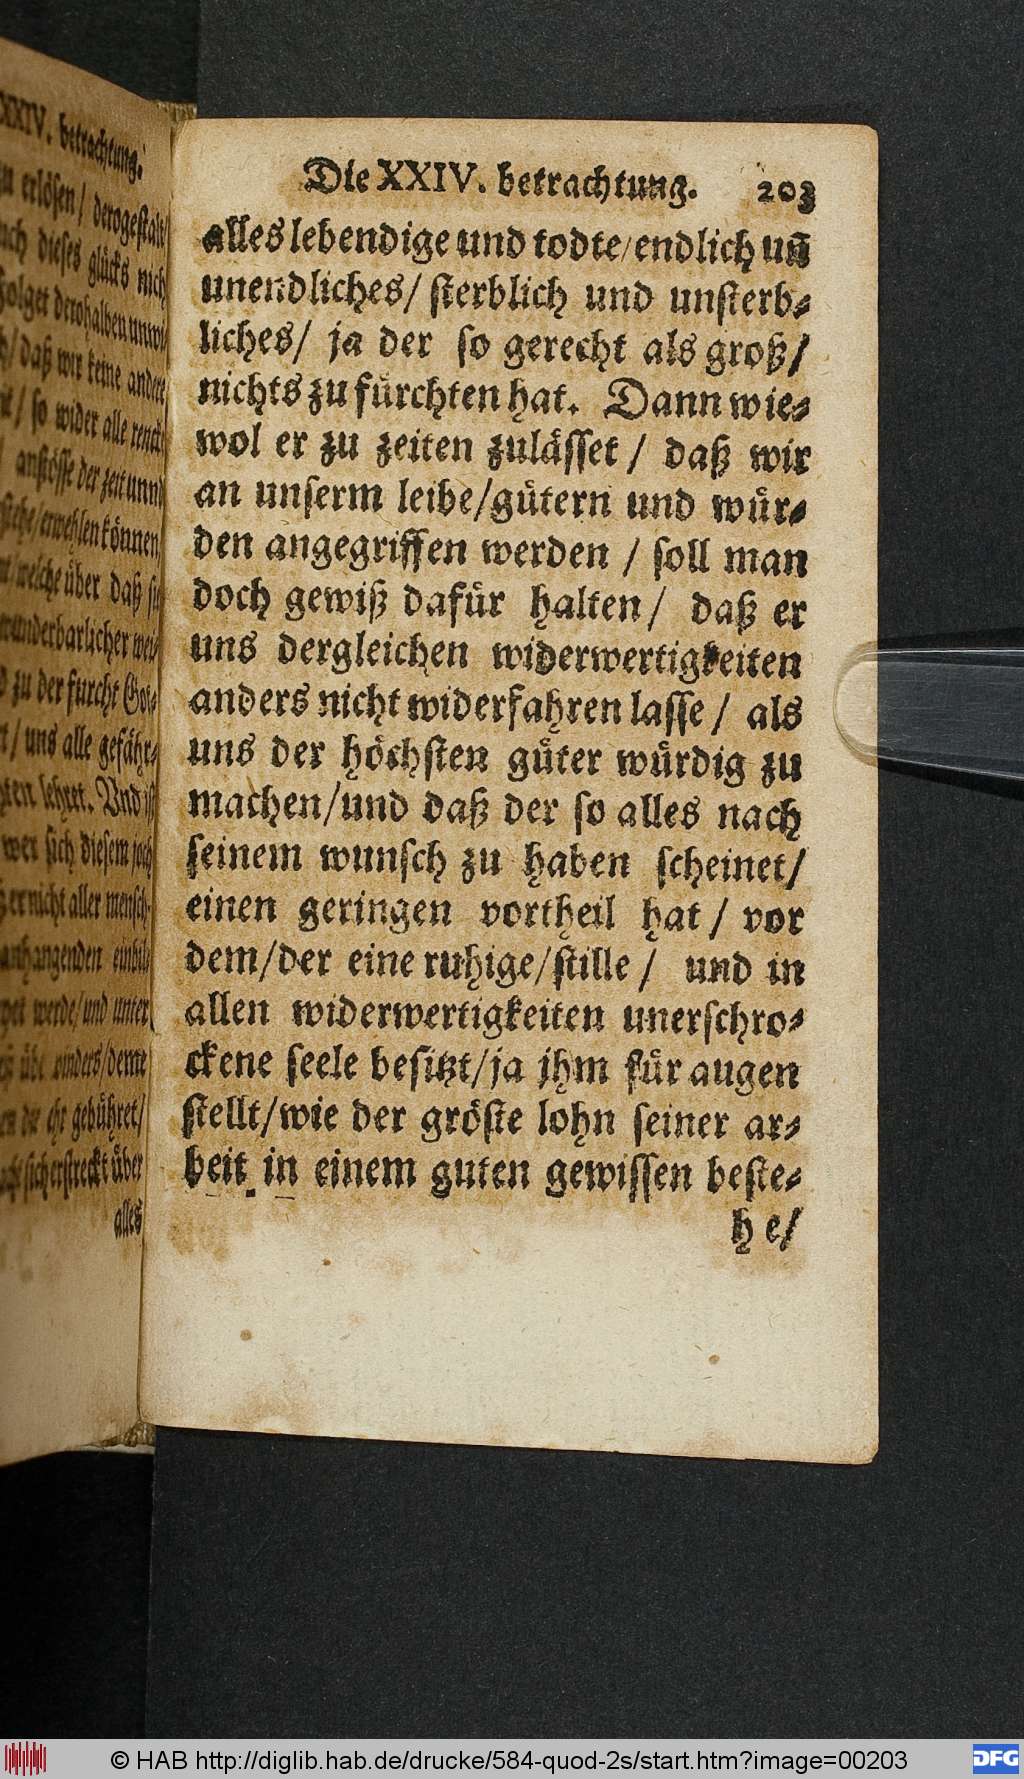 XXIV. betrachtung.
erlösen / derogestalt/
dieses glücks nich
folget derohalben unwi
daß wir keine andere
/ so wider alle
anstösse der zeit unnd
erwehlen können
welche über daß
wunderbarlicher wei-
zu der furcht Got-
/ uns alle gefähr-
lehret. Und ist
wer sich diesem joch
er nicht aller mensch-
anhangenden einbil-
werde/und unter
anders/deme
die ihr gebühret/
sich erstreckt über
alles
Die XXIV. betrachtung. 203
alles lebendige und todte/endlich uñ
unendliches/ sterblich und unsterb-
liches/ ja der so gerecht als groß/
nichts zu fürchten hat. Dann wie-
wol er zu zeiten zulässet / daß wir
an unserm leibe/gütern und wür-
den angegriffen werden / soll man
doch gewiß dafür halten/ daß er
uns dergleichen widerwertigkeiten
anders nicht widerfahren lasse / als
uns der höchsten güter würdig zu
machen/und daß der so alles nach
seinem wunsch zu haben scheinet/
einen geringen vortheil hat / vor
dem/der eine ruhige/stille / und in
allen widerwertigkeiten unerschro-
ckene seele besitzt/ja jhm für augen
stellt/wie der gröste lohn seiner ar-
beit in einem guten gewissen beste-
he/
© HAB http://diglib.hab.de/drucke/584-quod-2s/start.htm?image=00203
DFG